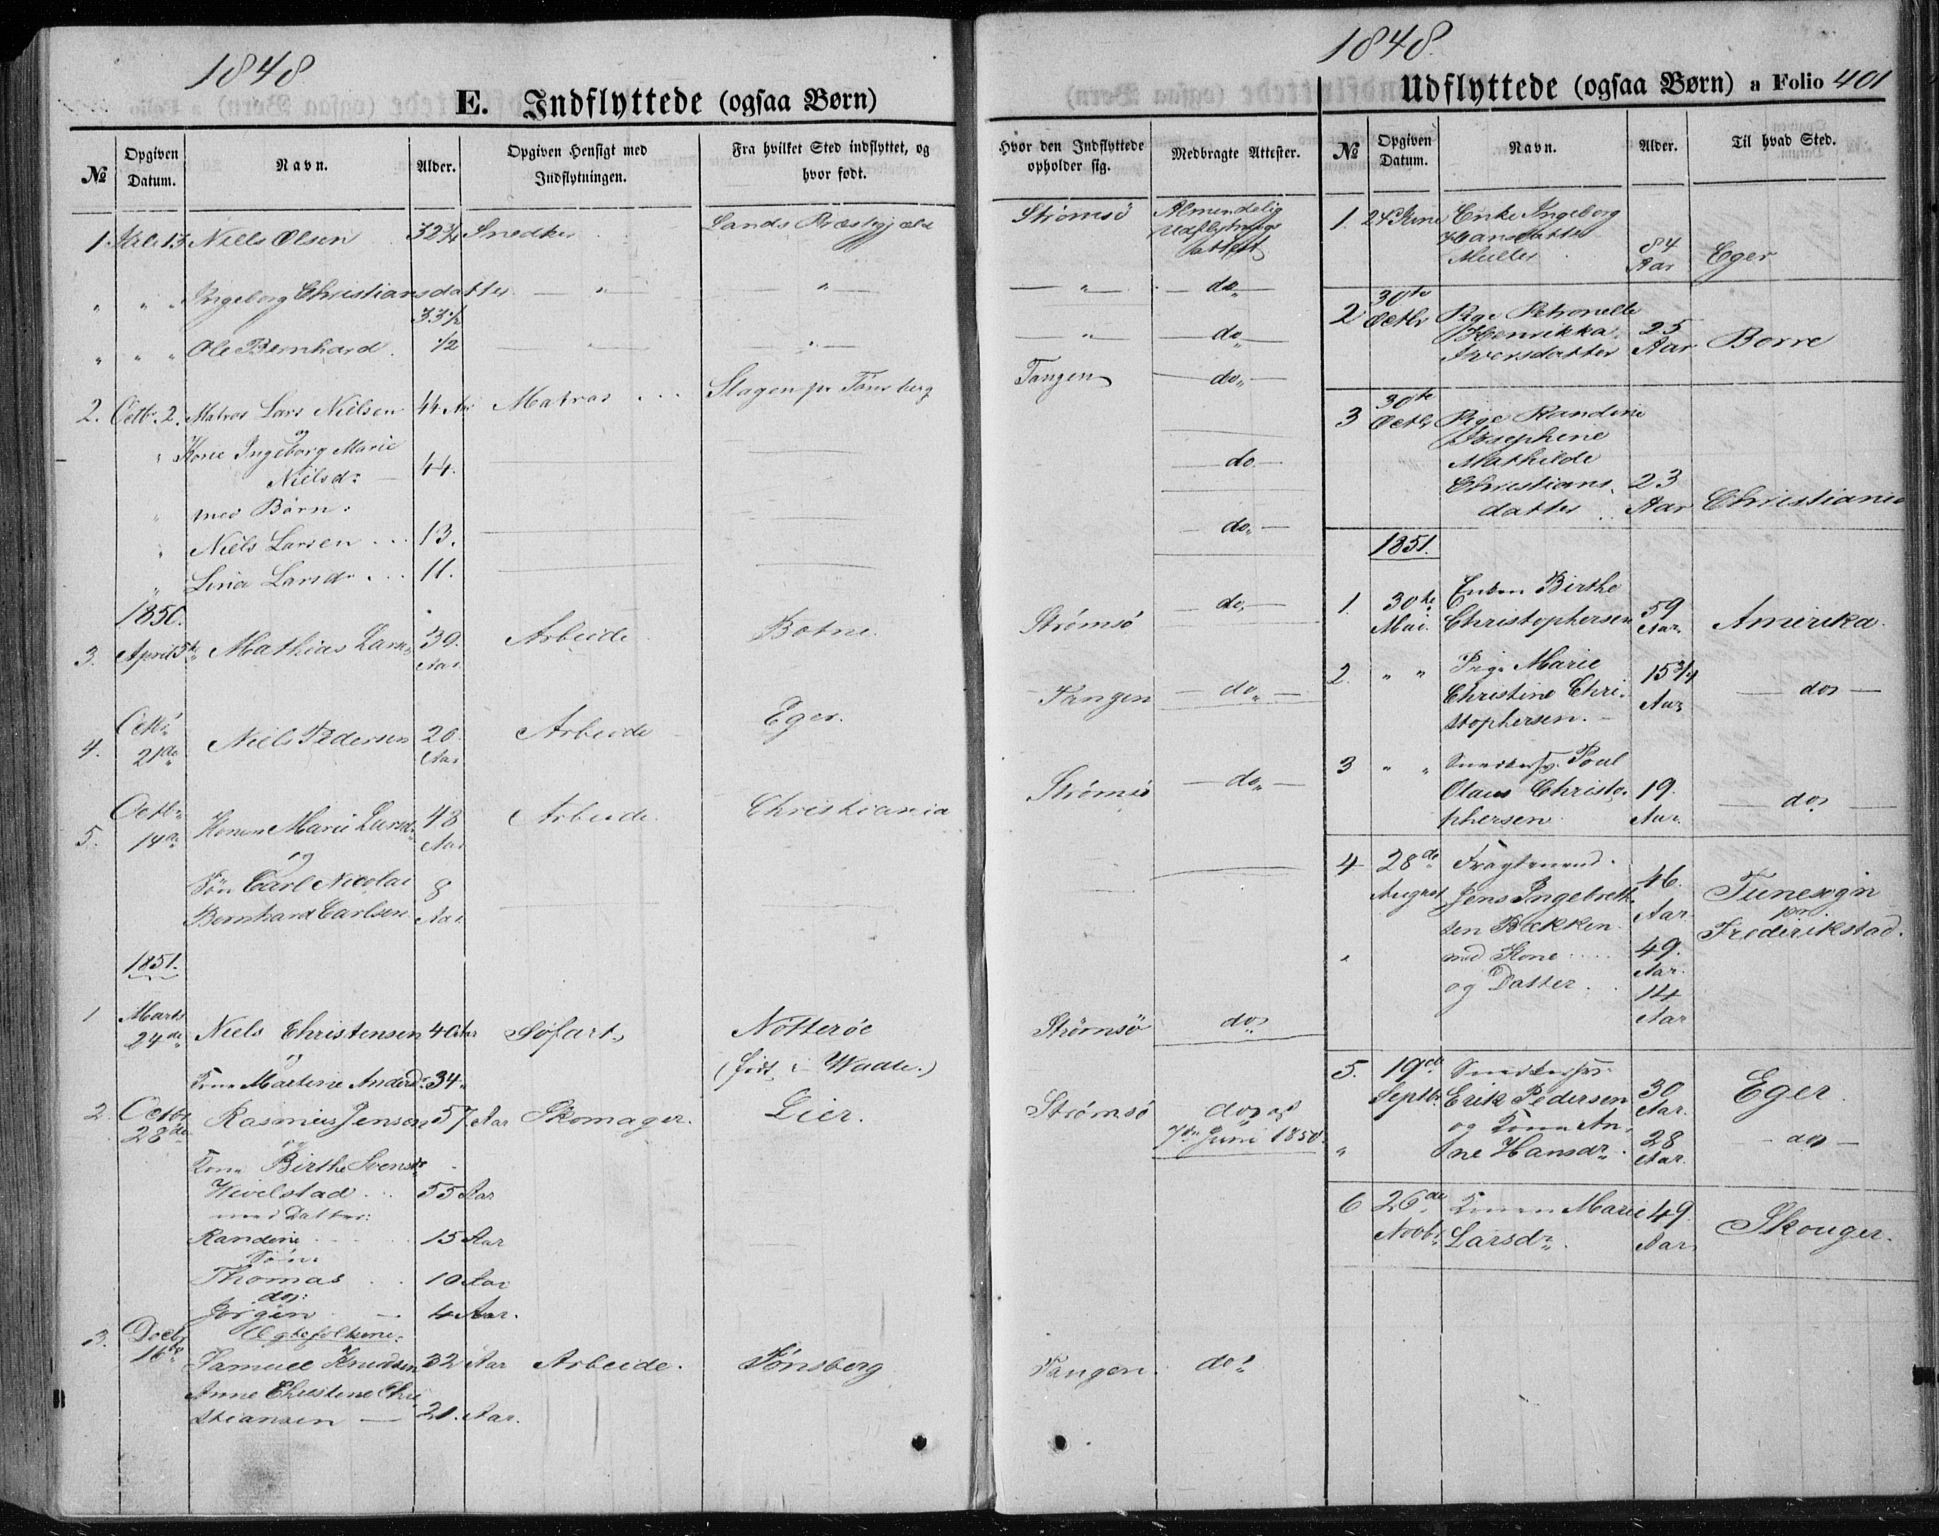 1848
E. Indflyttede (ogsaa Børn)
№
Opgiven Datum.
Navn.
Alder.
Opgiven Hensigt med Indflytningen.
Fra hvilket Sted indflyttet, og hvor født.
1 13 Niels Olsen 32 3/4 Snedker Lands Præstegjæld
" " " Ingeborg Christiansdatter — " — — " —
33 1/2
" " " Ole Bernhard. 1/2 — " — — " —
2. Octbr. 2. Matros Lars Nielsen 44 Aar Matros ... Slagen pr Tønsberg
og
" Kone Ingeborg Marie
Nielsd: — 44.
" med Børn:
" Niels Larsen ... 13.
" Lina Larsd: ... 11.
1850.
3. April 5te Mathias Lars: 39. Aar. Arbeide Botne.
4. Octb: 21de Niels Pedersen 20. Aar Arbeide Eger.
5. Octbr 14de Konen Marie Larsd: 48 Aar Arbeide. Christiania
og
Søn Carl Nicolai 8
Bernhard Carlsen Aar.
1851.
1 Marts 24de Niels Christensen 40 Aar Søfart Nøtterøe
og (født i Waale.)
Kone Martine Andersd: 34.
2. Octbr 28de Rasmus Jensen 57 Aar Skomager. Lier.
og
Kone Birthe Svensdr
Wivelstad ... 55 Aar
med Datter:
Randine ... 15 Aar
Søn:
Thomas .. 10 Aar
do:
Jørgen — 4 Aar.
3. Decbr 16de Ægtefolkene:
Samuel Knudsen 32 Aar Arbeide. Tønsberg
Anne Christine Chri
stiansen — 21. Aar.
Hvor den Indflyttede opholder sig.
Medbragte Attester.
Strømsö Almindelig
Udflytnings
Attest
— " — — do —
— " — — do —
Tangen — do" —
— do —
— do" —
Strømsö — do, —
Tangen — do" —
Strømsö — do" —
Strømsö do"
Strømsö do" af
7de Juni 1850.
Tangen. do"
1848.
Udflyttede (ogsaa Børn) a Folio 401
№
Opgiven Datum.
Navn.
Alder.
Til hvad Sted.
1. 24de June Enke Ingeborg
Hansdatter
Muller 84 Aar Eger
2 30te Octbr Pige Petronelle
Henrikka
Iversdatter 25 Aar Borre
3 30te Octbr Pige Randine
Josephine
Mathilde
Christians
datter .. 23 Aar Christiania
1851.
1. 30te Mai. Enken Birthe
Christophersen 59 Aar. Amerika.
2. " " Pige Marie
Christine Chri-
stophersen. — 15 3/4 Aar — do" —
3 " " Snedkersv. Poul
Olaus Christo-
phersen 19. Aar. — do" —
4 28de August Fragtemand.
Jens Ingebrett- 46.
sen Bækken Aar. Tunesogn
pr.
Frederikstad.
" med Kone .... 49. Aar.
og Datter . 14 Aar
5. 19de Septbr. Snedkersv.
Erik Pedersen 30 Aar. Eger.
" og Kone An-
ne Hansdr. 28 Aar. — do" —
6 26de Novbr Konen Marie 49.
Larsdr. Aar Skouger.